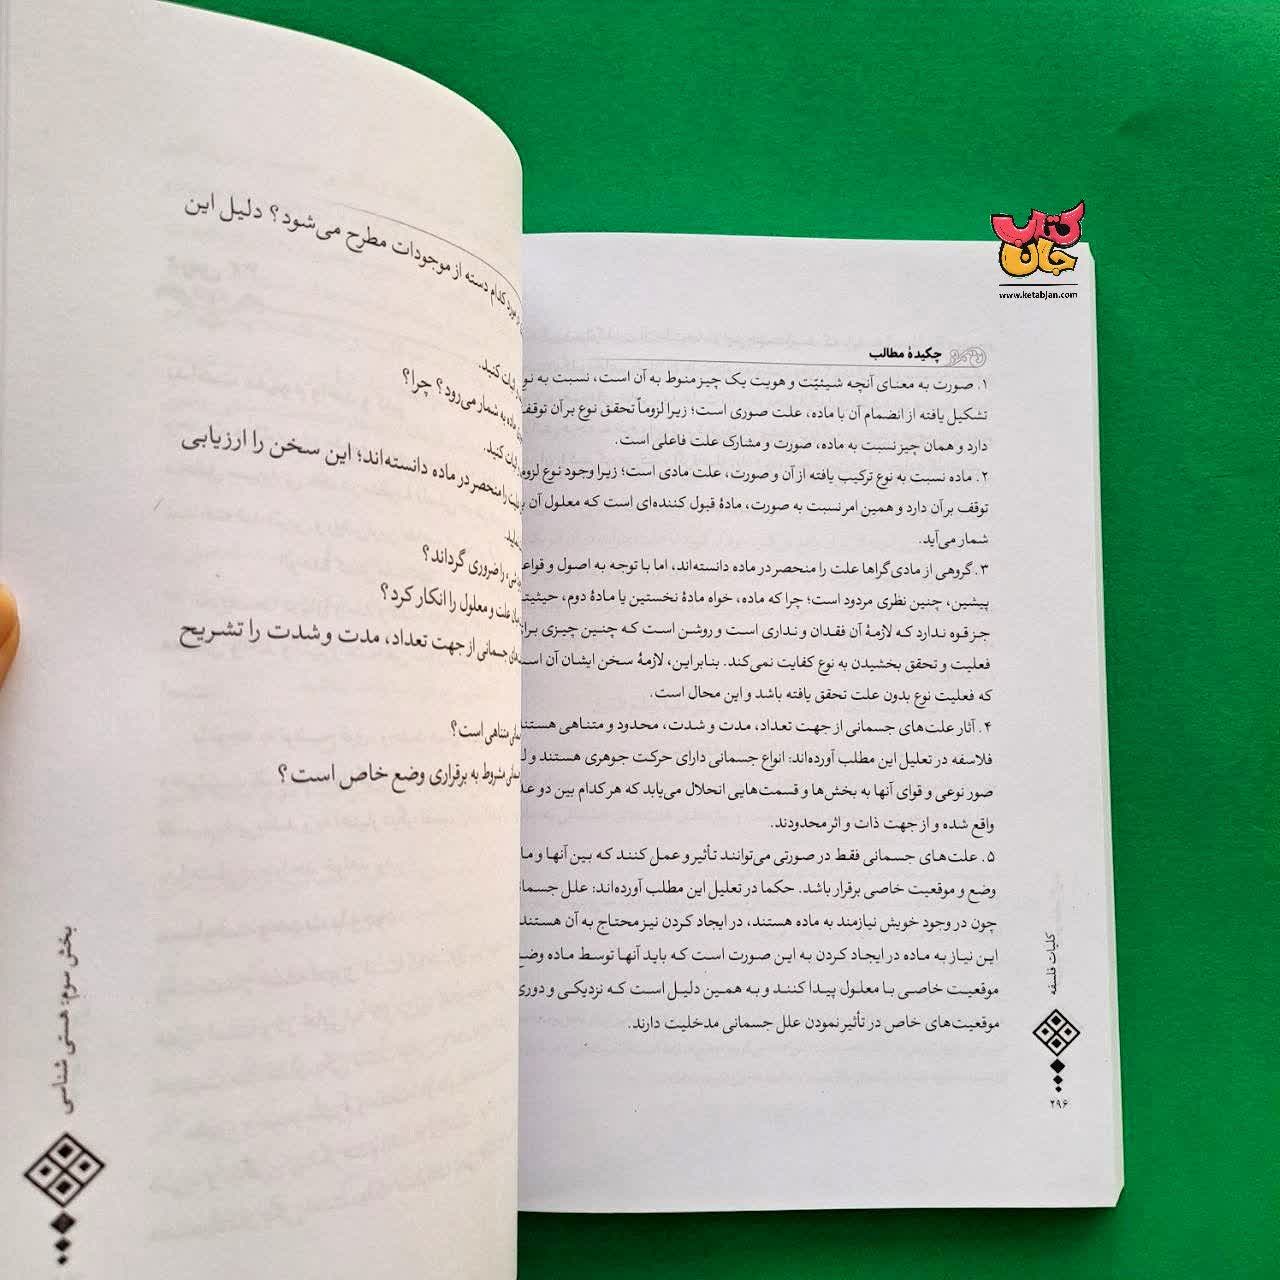 کتاب
جان
www.ketabjan.com
چکیدهٔ مطالب
۱. صورت به معنای آنچه شیئیّت و هویت یک چیز منوط به آن است، نسبت به
تشکیل یافته از انضمام آن با ماده، علت صوری است؛ زیرا لزوماً تحقق نوع بر آن توقف
دارد و همان چیز نسبت به ماده، صورت و مشارک علت فاعلی است.
۲. ماده نسبت به نوع ترکیب یافته از آن و صورت، علت مادی است؛ زیرا وجود نوع
توقف بر آن دارد و همین امر نسبت به صورت، مادهٔ قبول کننده‌ای است که معلول آن
شمار می‌آید.
۳. گروهی از مادی‌گراها علت را منحصر در ماده دانسته‌اند، اما با توجه به اصول و
پیشین، چنین نظری مردود است؛ چرا که ماده، خواه مادهٔ نخستین یا مادهٔ دوم،
جز قوه ندارد که لازمهٔ آن فقدان و نداری است و روشن است که چنین چیزی
فعلیت و تحقق بخشیدن به نوع کفایت نمی‌کند. بنابراین، لازمهٔ سخن ایشان آن
که فعلیت نوع بدون علت تحقق یافته باشد و این محال است.
۴. آثار علت‌های جسمانی از جهت تعداد، مدت و شدت، محدود و متناهی
فلاسفه در تعلیل این مطلب آورده‌اند: انواع جسمانی دارای حرکت جوهری هستند و
صور نوعی و قوای آنها به بخش‌ها و قسمت‌هایی انحلال می‌یابد که هر کدام بین دو
واقع شده و از جهت ذات و اثر محدودند.
۵. علت‌های جسمانی فقط در صورتی می‌توانند تأثیر و عمل کنند که بین آنها و
وضع و موقعیت خاصی برقرار باشد. حکما در تعلیل این مطلب آورده‌اند: علل
چون در وجود خویش نیازمند به ماده هستند، در ایجاد کردن نیز محتاج به آن هستند
این نیاز به ماده در ایجاد کردن به این صورت است که باید آنها توسط ماده
موقعیت خاصی با معلول پیدا کنند و به همین دلیل است که نزدیکی و دوری
موقعیت‌های خاص در تأثیر نمودن علل جسمانی مدخلیت دارند.
کلیات فلسفه
۲۹۶
مورد کدام دسته از موجودات مطرح می‌شود؟ دلیل این
اثبات کنید.
ماده به شمار می‌رود؟ چرا؟
اثبات کنید.
را منحصر در ماده دانسته‌اند؛ این سخن را ارزیابی
را ضروری گرداند؟
علت و معلول را انکار کرد؟
جسمانی از جهت تعداد، مدت و شدت را تشریح
متناهی است؟
مشروط به برقراری وضع خاص است؟
بخش سوم: هستی شناسی